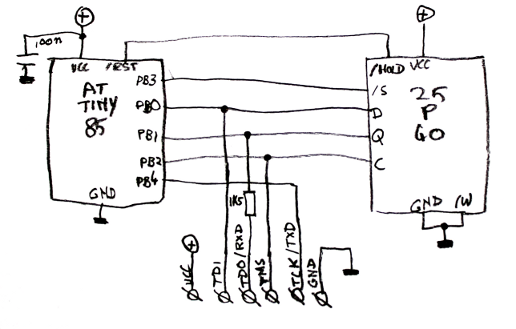 100n
VCC
/RST
/HOLD
VCC
AT
TINY
85
PB3
PB0
PB1
PB2
PB4
GND
/S
D
Q
C
25
P
40
GND
/W
1K5
VCC
TDI
TDO/RXD
TMS
TCK/TXD
GND